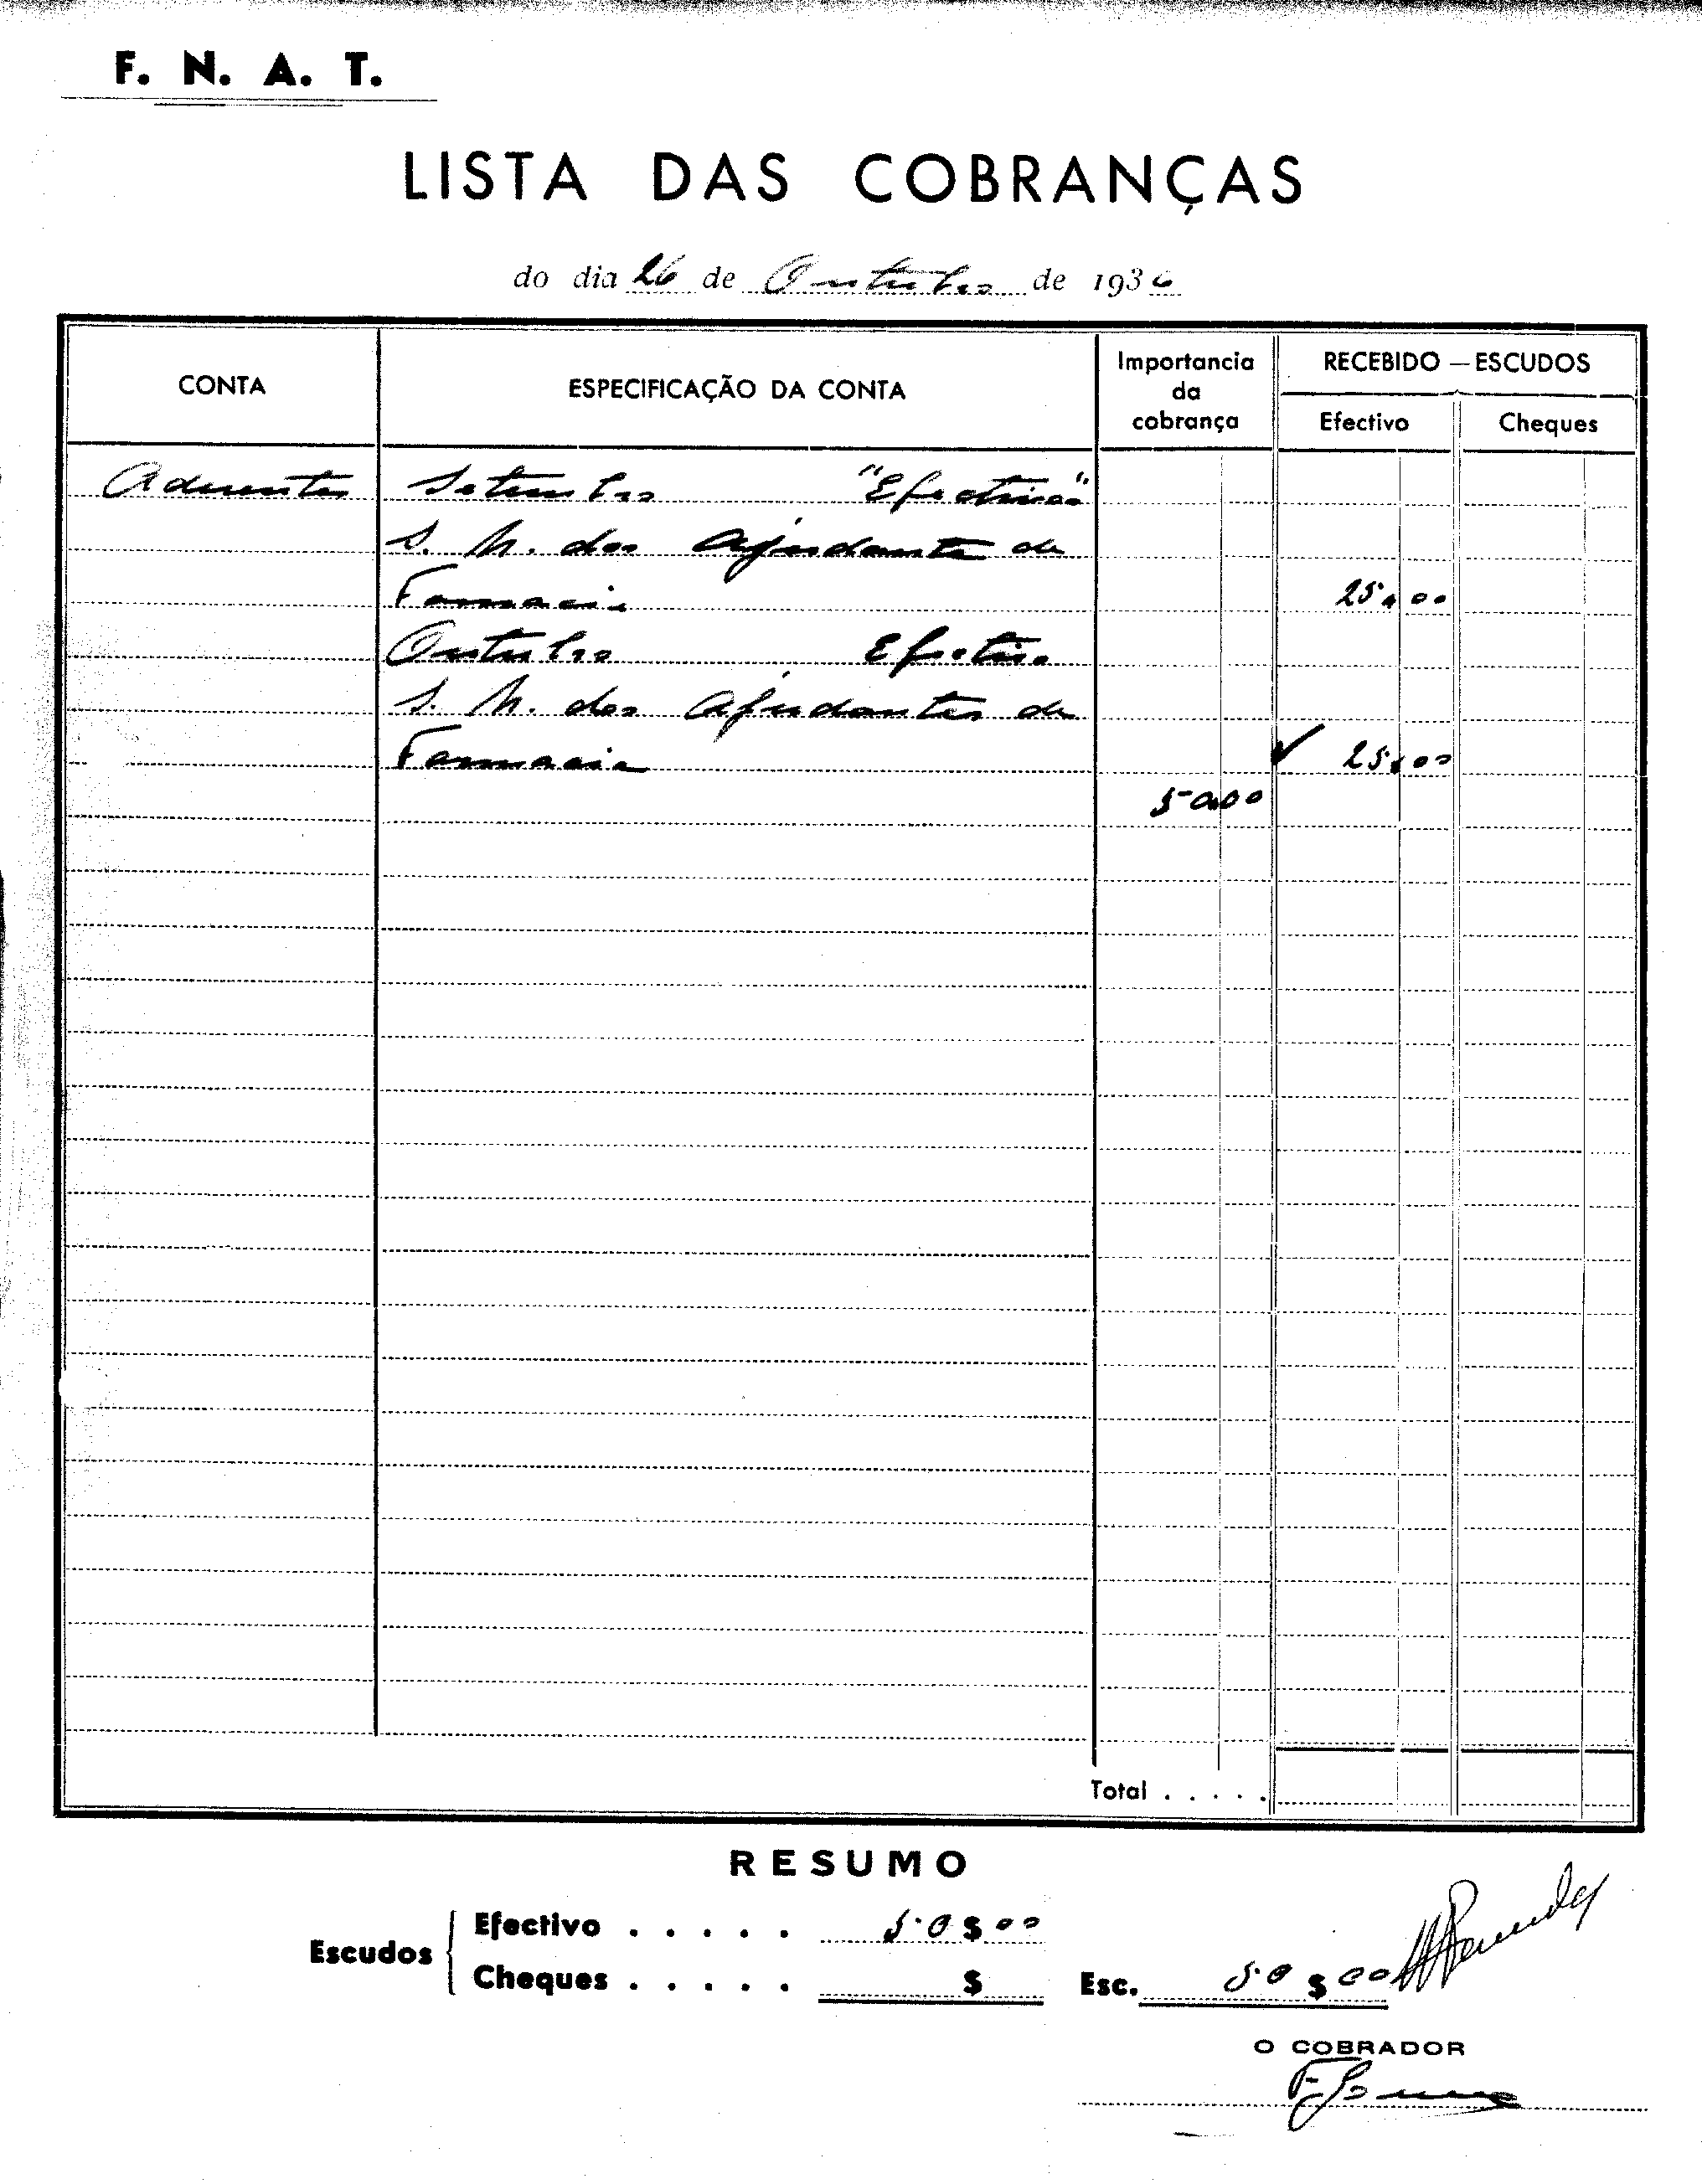 F. N. A. T.
LISTA DAS COBRANÇAS
do dia 26 de Outubro de 1936
CONTA
ESPECIFICAÇÃO DA CONTA
Importancia
da
cobrança
RECEBIDO — ESCUDOS
Efectivo
Cheques
Aderentes Setembro "Efectivos"
S. N. dos Ajudantes de
Farmacia 25,00
Outubro Efectivo
S. N. dos Ajudantes de
Farmacia ✓ 25,00
50,00
Total . . . . .
RESUMO
Escudos
Efectivo . . . . . 50$00
Cheques . . . . . $
Esc. 50$00
O COBRADOR